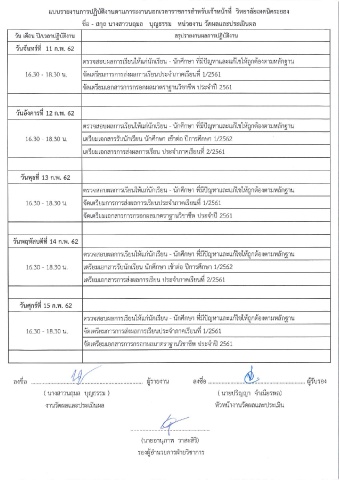 แบบรายงานการปฏิบัติงานตามภาระงานนอกเวลาราชการสำหรับเจ้าหน้าที่ วิทยาลัยเทคนิคระยอง
ชื่อ - สกุล นางสาวนฤมล บุญธรรม หน่วยงาน วัดผลและประเมินผล
วัน เดือน ปี/เวลาปฏิบัติงาน สรุปรายงานผลการปฏิบัติงาน
วันจันทร์ที่ 11 ก.พ. 62
ตรวจสอบผลการเรียนให้แก่นักเรียน - นักศึกษา ที่มีปัญหาและแก้ไขให้ถูกต้องตามหลักฐาน
16.30 - 18.30 น. จัดเตรียมการการส่งผลการเรียนประจำภาคเรียนที่ 1/2561
จัดเตรียมเอกสารการกรอกผลมาตราฐานวิชาชีพ ประจำปี 2561
วันอังคารที่ 12 ก.พ. 62
ตรวจสอบผลการเรียนให้แก่นักเรียน - นักศึกษา ที่มีปัญหาและแก้ไขให้ถูกต้องตามหลักฐาน
16.30 - 18.30 น. เตรียมเอกสารรับนักเรียน นักศึกษา เข้าต่อ ปีการศึกษา 1/2562
เตรียมเอกสารการส่งผลการเรียน ประจำภาคเรียนที่ 2/2561
วันพุธที่ 13 ก.พ. 62
ตรวจสอบผลการเรียนให้แก่นักเรียน - นักศึกษา ที่มีปัญหาและแก้ไขให้ถูกต้องตามหลักฐาน
16.30 - 18.30 น. จัดเตรียมการการส่งผลการเรียนประจำภาคเรียนที่ 1/2561
จัดเตรียมเอกสารการกรอกผลมาตราฐานวิชาชีพ ประจำปี 2561
วันพฤหัสบดีที่ 14 ก.พ. 62
ตรวจสอบผลการเรียนให้แก่นักเรียน - นักศึกษา ที่มีปัญหาและแก้ไขให้ถูกต้องตามหลักฐาน
16.30 - 18.30 น. เตรียมเอกสารรับนักเรียน นักศึกษา เข้าต่อ ปีการศึกษา 1/2562
เตรียมเอกสารการส่งผลการเรียน ประจำภาคเรียนที่ 2/2561
วันศุกร์ที่ 15 ก.พ. 62
ตรวจสอบผลการเรียนให้แก่นักเรียน - นักศึกษา ที่มีปัญหาและแก้ไขให้ถูกต้องตามหลักฐาน
16.30 - 18.30 น. จัดเตรียมการการส่งผลการเรียนประจำภาคเรียนที่ 1/2561
จัดเตรียมเอกสารการกรอกผลมาตราฐานวิชาชีพ ประจำปี 2561
ลงชื่อ ผู้รายงาน ลงชื่อ ผู้รับรอง
( นางสาวนฤมล บุญธรรม )
งานวัดผลและประเมินผล หัวหน้างานวัดผลและประเมิน
รองผู้อำนวยการฝ่ายวิชาการ